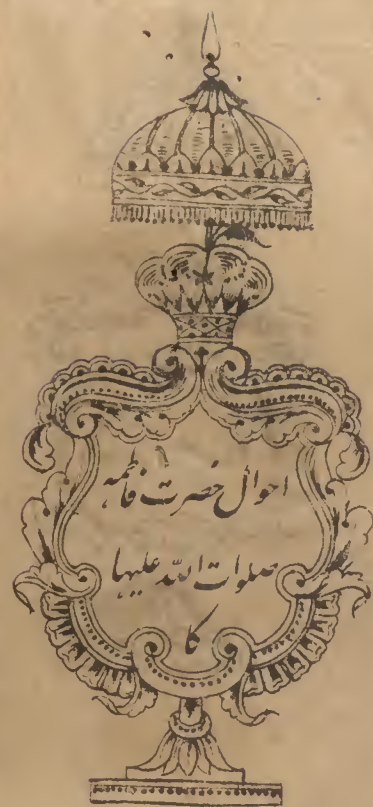 احوال حضرت فاطمہ
صلوات اللہ علیہا
کا